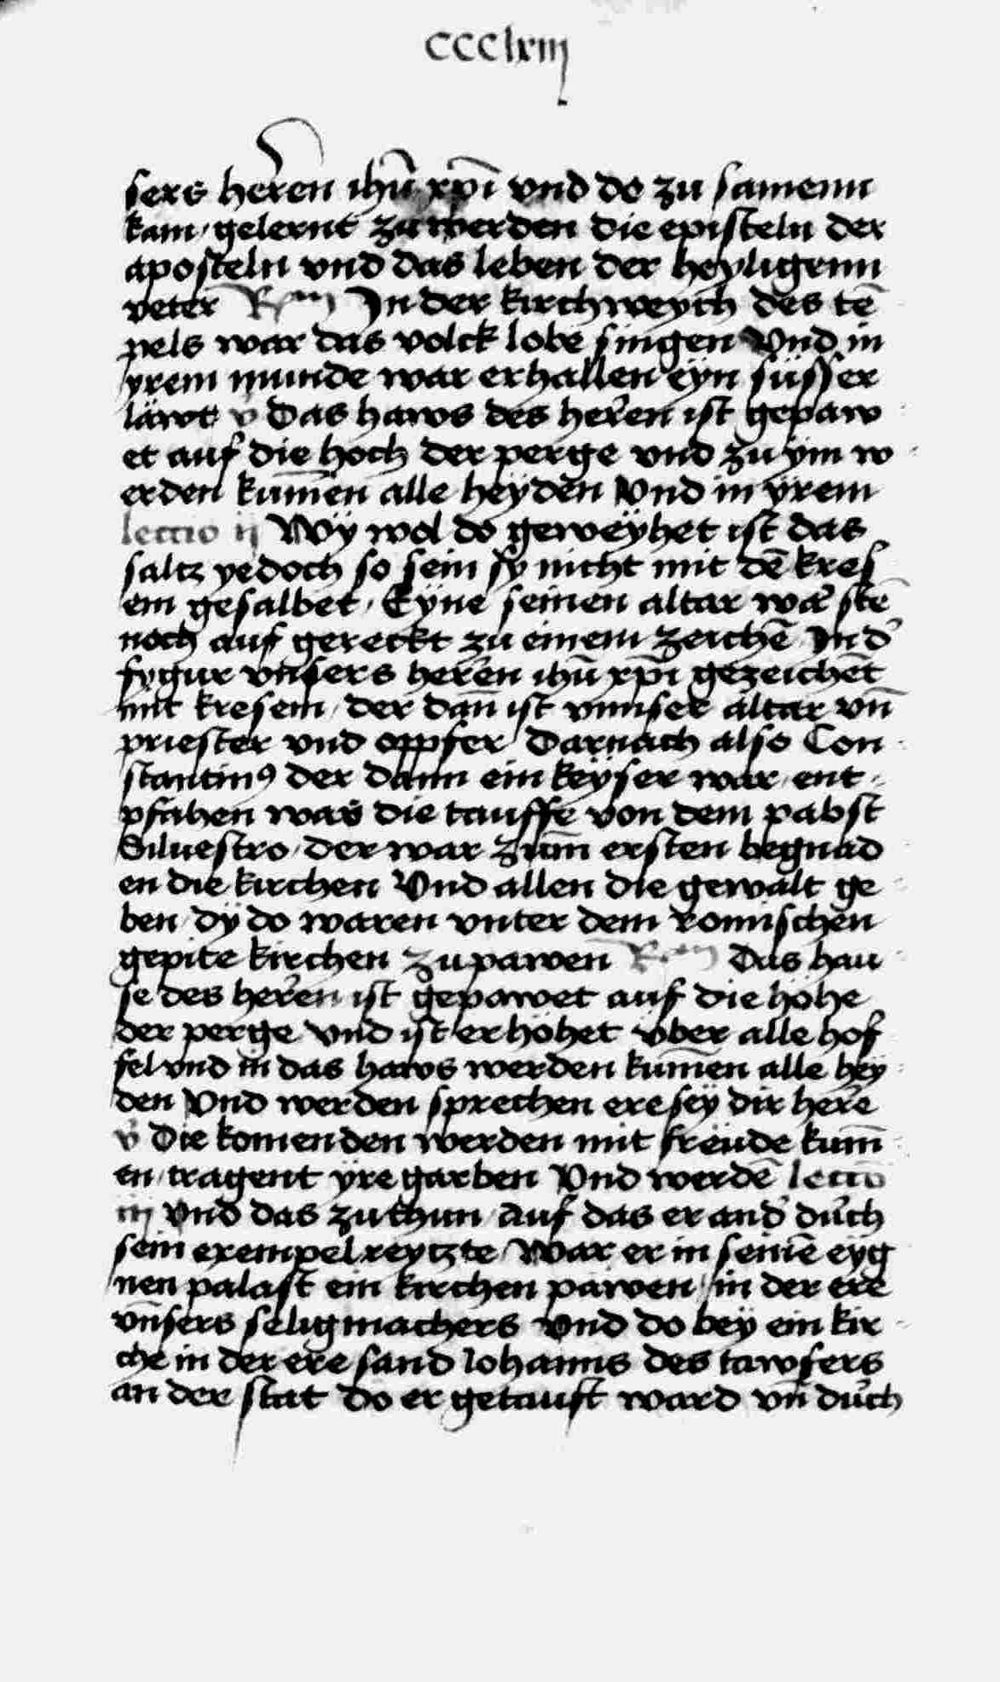 ccclxiij
sers heren ihū xpī vnd do zu samenn
kam gelernt zu werden die episteln der
aposteln vnd das leben der heyligenn
veter In der kirchweych des tē
pels war das volck lobē singen Vnd in
yrem munde war erhallen eyn süsser
läwt v Das haws des heren ist gepaw
et auf die hoch der perge vnd zu ym w
erden kum̄en alle heyden Vnd in yrem
lectio ij Wÿ wol do geweyhet ist das
saltz yedoch so sein sy nicht mit dē kres
em gesalbet Eyne seinen altar stē
noch auf gereckt zu einem zeichē In d'
fygur vnsers heren ihū xpī gezeichēt
mit kresem der dan̄ ist vnnser altar vn̄
priester vnd oppfer Darnach also Con
stantinꝰ der dann ein keyser war ent
pfahen was die tauffe von dem pabst
Siluestro der war zum̄ ersten begnad
en die kirchen Vnd allen die gewalt ge
ben dÿ do waren vnter dem Romischen
gepite kirchen zu pawen Das hau
se des heren ist gepawet auf die höhe
der perge vnd ist erhöhet vber alle hof
fel vnd in das haws werden kum̄en alle hey
den Vnd werden sprechen ere sey dir herē
v̄ Die komenden werden mit freude kum̄
en tragent yre garben Vnd werdē lectō
iij Vnd das zu thun Auf das er and' durch
sein exempel reytzte War er in seinē eyg
nen palast ein kirchen pawen in der ere
vn̄sers seligmachers Vnd do bey ein kir
che in der ere sand Iohanns des tawfers
an der stat do er getauft ward vn̄ durch